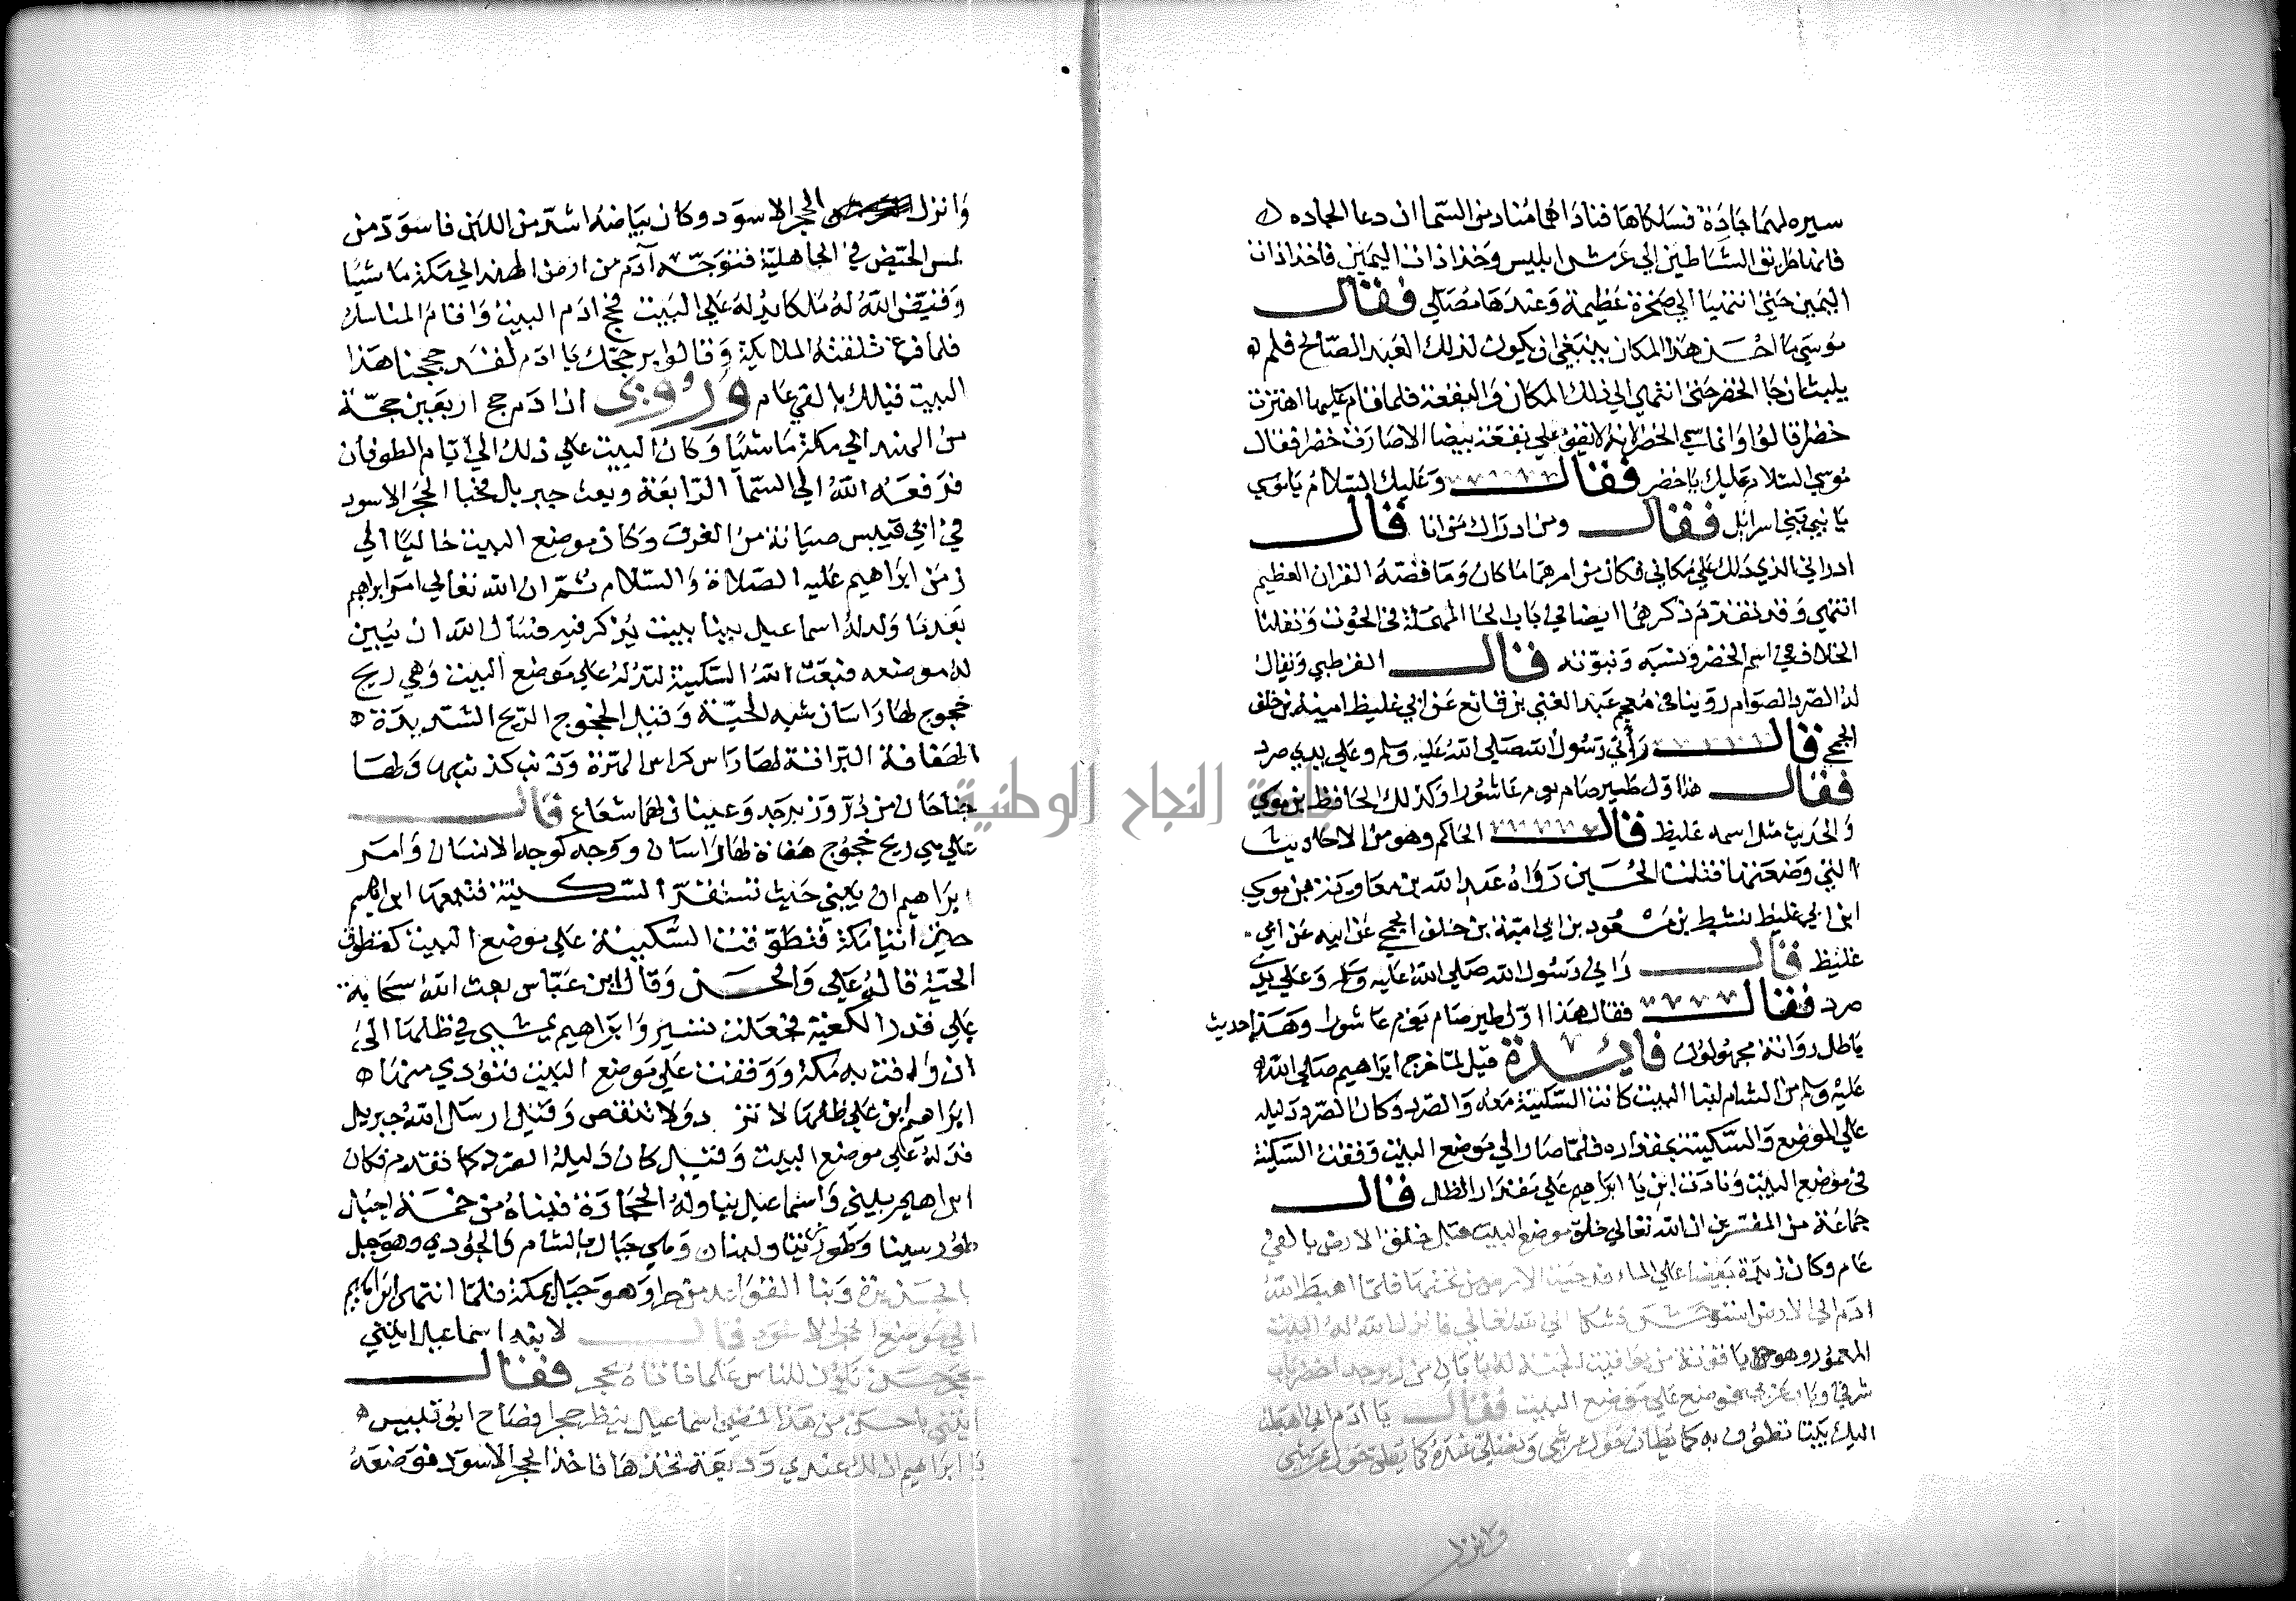 سيره لهما جادة فسلكاها فناداهما مناد من السما ان دعا الجاده
فانها طريق الشياطين الي عرش ابليس وخذا ذات اليمين فاخذا ذات
اليمين حتي انتهيا الي صخرة عظيمة وعندها مصلي فقال
موسي ما احسن هذا المكان ينبغي ان يكون لذلك العبد الصالح فلم
يلبثا ان جا الخضر حتي انتهي الي ذلك المكان والبقعة فلما قام عليها اهتزت
خضرا قالوا وانما سمي الخضر لانه لا يقف علي بقعة بيضا الا صارت خضرا فقال
موسي السلام عليك يا خضر فقال وعليك السلام يا موسي
يا نبي بني اسرايل فقال ومن ادراك من انا قال
ادراني الذي دلك علي مكاني فكان من امرهما ما كان وما قصه القران العظيم
انتهي وقد تقدم ذكرهما ايضا في باب الحا المهملة في الحوت ونقلنا
الخلاف في اسم الخضر ونسبه ونبوته قال القرطبي ويقال
له الصرد الصوام روينا في معجم عبد الغني بن قانع عن ابي غليظ امية بن خلف
الجمحي قال رأني رسول الله صلي الله عليه وسلم وعلي يدي صرد
فقال هذا اول طير صام يوم عاشورا وكذلك الحافظ ابن موسي
والحديث مثل اسمه غليظ قال الحاكم وهو من الاحاديث
التي وضعتها قتلت الحسين رواه عبد الله بن معاوية بن موسي
ابن ابي غليظ نشيط بن مسعود بن ابي امية بن خلف الجمحي عن ابيه عن ابي
غليظ قال راني رسول الله صلي الله عليه وسلم وعلي يدي
صرد فقال فقال هذا اول طير صام يوم عاشورا وهذا حديث
باطل رواته مجهولون فايدة قيل لما خرج ابراهيم صلي الله
عليه وسلم من الشام لبنا البيت كانت السكينة معه والصرد وكان الصرد دليله
علي الموضع والسكينة بمقداره فلما صار الي موضع البيت وقفت السكينة
في موضع البيت ونادت ابن يا ابراهيم علي مقدار الظل قال
جماعة من المفسرين ان الله تعالي خلق موضع البيت قبل خلق الارض بالفي
عام وكان زبدة بيضا علي الماء فدحيت الارض من تحتها فلما اهبط الله
ادم الي الارض استوحش فشكا الي الله تعالي فانزل الله له البيت
المعمور وهو من ياقوتة من يواقيت الجنة له بابان من زبرجد اخضر باب
شرقي وباب غربي فوضع علي موضع البيت فقال يا ادم اني اهبطت
اليك بيتا تطوف به كما يطاف حول عرشي وتصلي عنده كما يصلي حول عرشي
وانزل
وانزل الحجر الاسود وكان بياضه اشد من اللبن فاسود من
لمس الحيض في الجاهلية فتوجه آدم من ارض الهند الي مكة ماشيا
وقيض الله له ملكا يدله علي البيت فحج ادم البيت واقام المناسك
فلما فرغ تلقته الملايكة وقالوا بر حجك يا ادم لقد حججنا هذا
البيت قبلك بالفي عام وروي ان ادم حج اربعين حجة
من الهند الي مكة ماشيا وكان البيت علي ذلك الي ايام الطوفان
فرفعه الله الي السمآ الرابعة وبعث جبريل فخبا الحجر الاسود
في ابي قبيس صيانة من الغرق وكان موضع البيت خاليا الي
زمن ابراهيم عليه الصلاة والسلام ثم ان الله تعالي امر ابراهيم
بعدما ولد له اسماعيل ببنا بيت يذكر فيه فسال الله ان يبين
له موضعه فبعث الله السكينة لتدله علي موضع البيت وهي ريح
خجوج لها راسان شبه الحية وقيل الخجوج الريح الشديدة
الهفافة البراقة لها راس كراس الهرة وذنب كذنبها ولها
جناحان من در وزبرجد وعينان لهما شعاع قال
علي هي ريح خجوج هفافة لها راسان ووجه كوجه الانسان وامر
ابراهيم ان يبني حيث تستقر السكينة فتبعها ابراهيم
حتي اتيا مكة فتطوقت السكينة علي موضع البيت كتطوق
الحية قاله علي والحسن وقال ابن عباس بعث الله سحابة
علي قدر الكعبة فجعلت تسير وابراهيم يمشي في ظلها الي
ان وافت به مكة ووقفت علي موضع البيت فنودي منها
ابراهيم ابن علي ظلها لا تزد ولا تنقص وقيل ارسل الله جبريل
فدله علي موضع البيت وقيل كان دليله الصرد كما تقدم فكان
ابراهيم يبني واسماعيل يناوله الحجارة فبناه من خمسة اجبل
طور سينا وطور زيتا ولبنان وهي جبال بالشام والجودي وهو جبل
بالجزيرة وبنا القواعد من حرا وهو جبل بمكة فلما انتهي ابراهيم
الي موضع الحجر الاسود قال لابنه اسماعيل ايتني
بحجر حسن يكون للناس علما فاتاه بحجر فقال
ايتني باحسن من هذا فمضي اسماعيل ينظر حجرا فصاح ابو قبيس
يا ابراهيم ان لك عندي وديعة فخذها فاخذ الحجر الاسود فوضعه
جامعة النجاح الوطنية